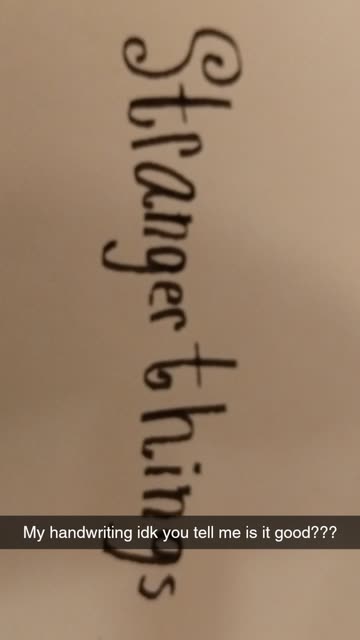 Stranger things
My handwriting idk you tell me is it good???